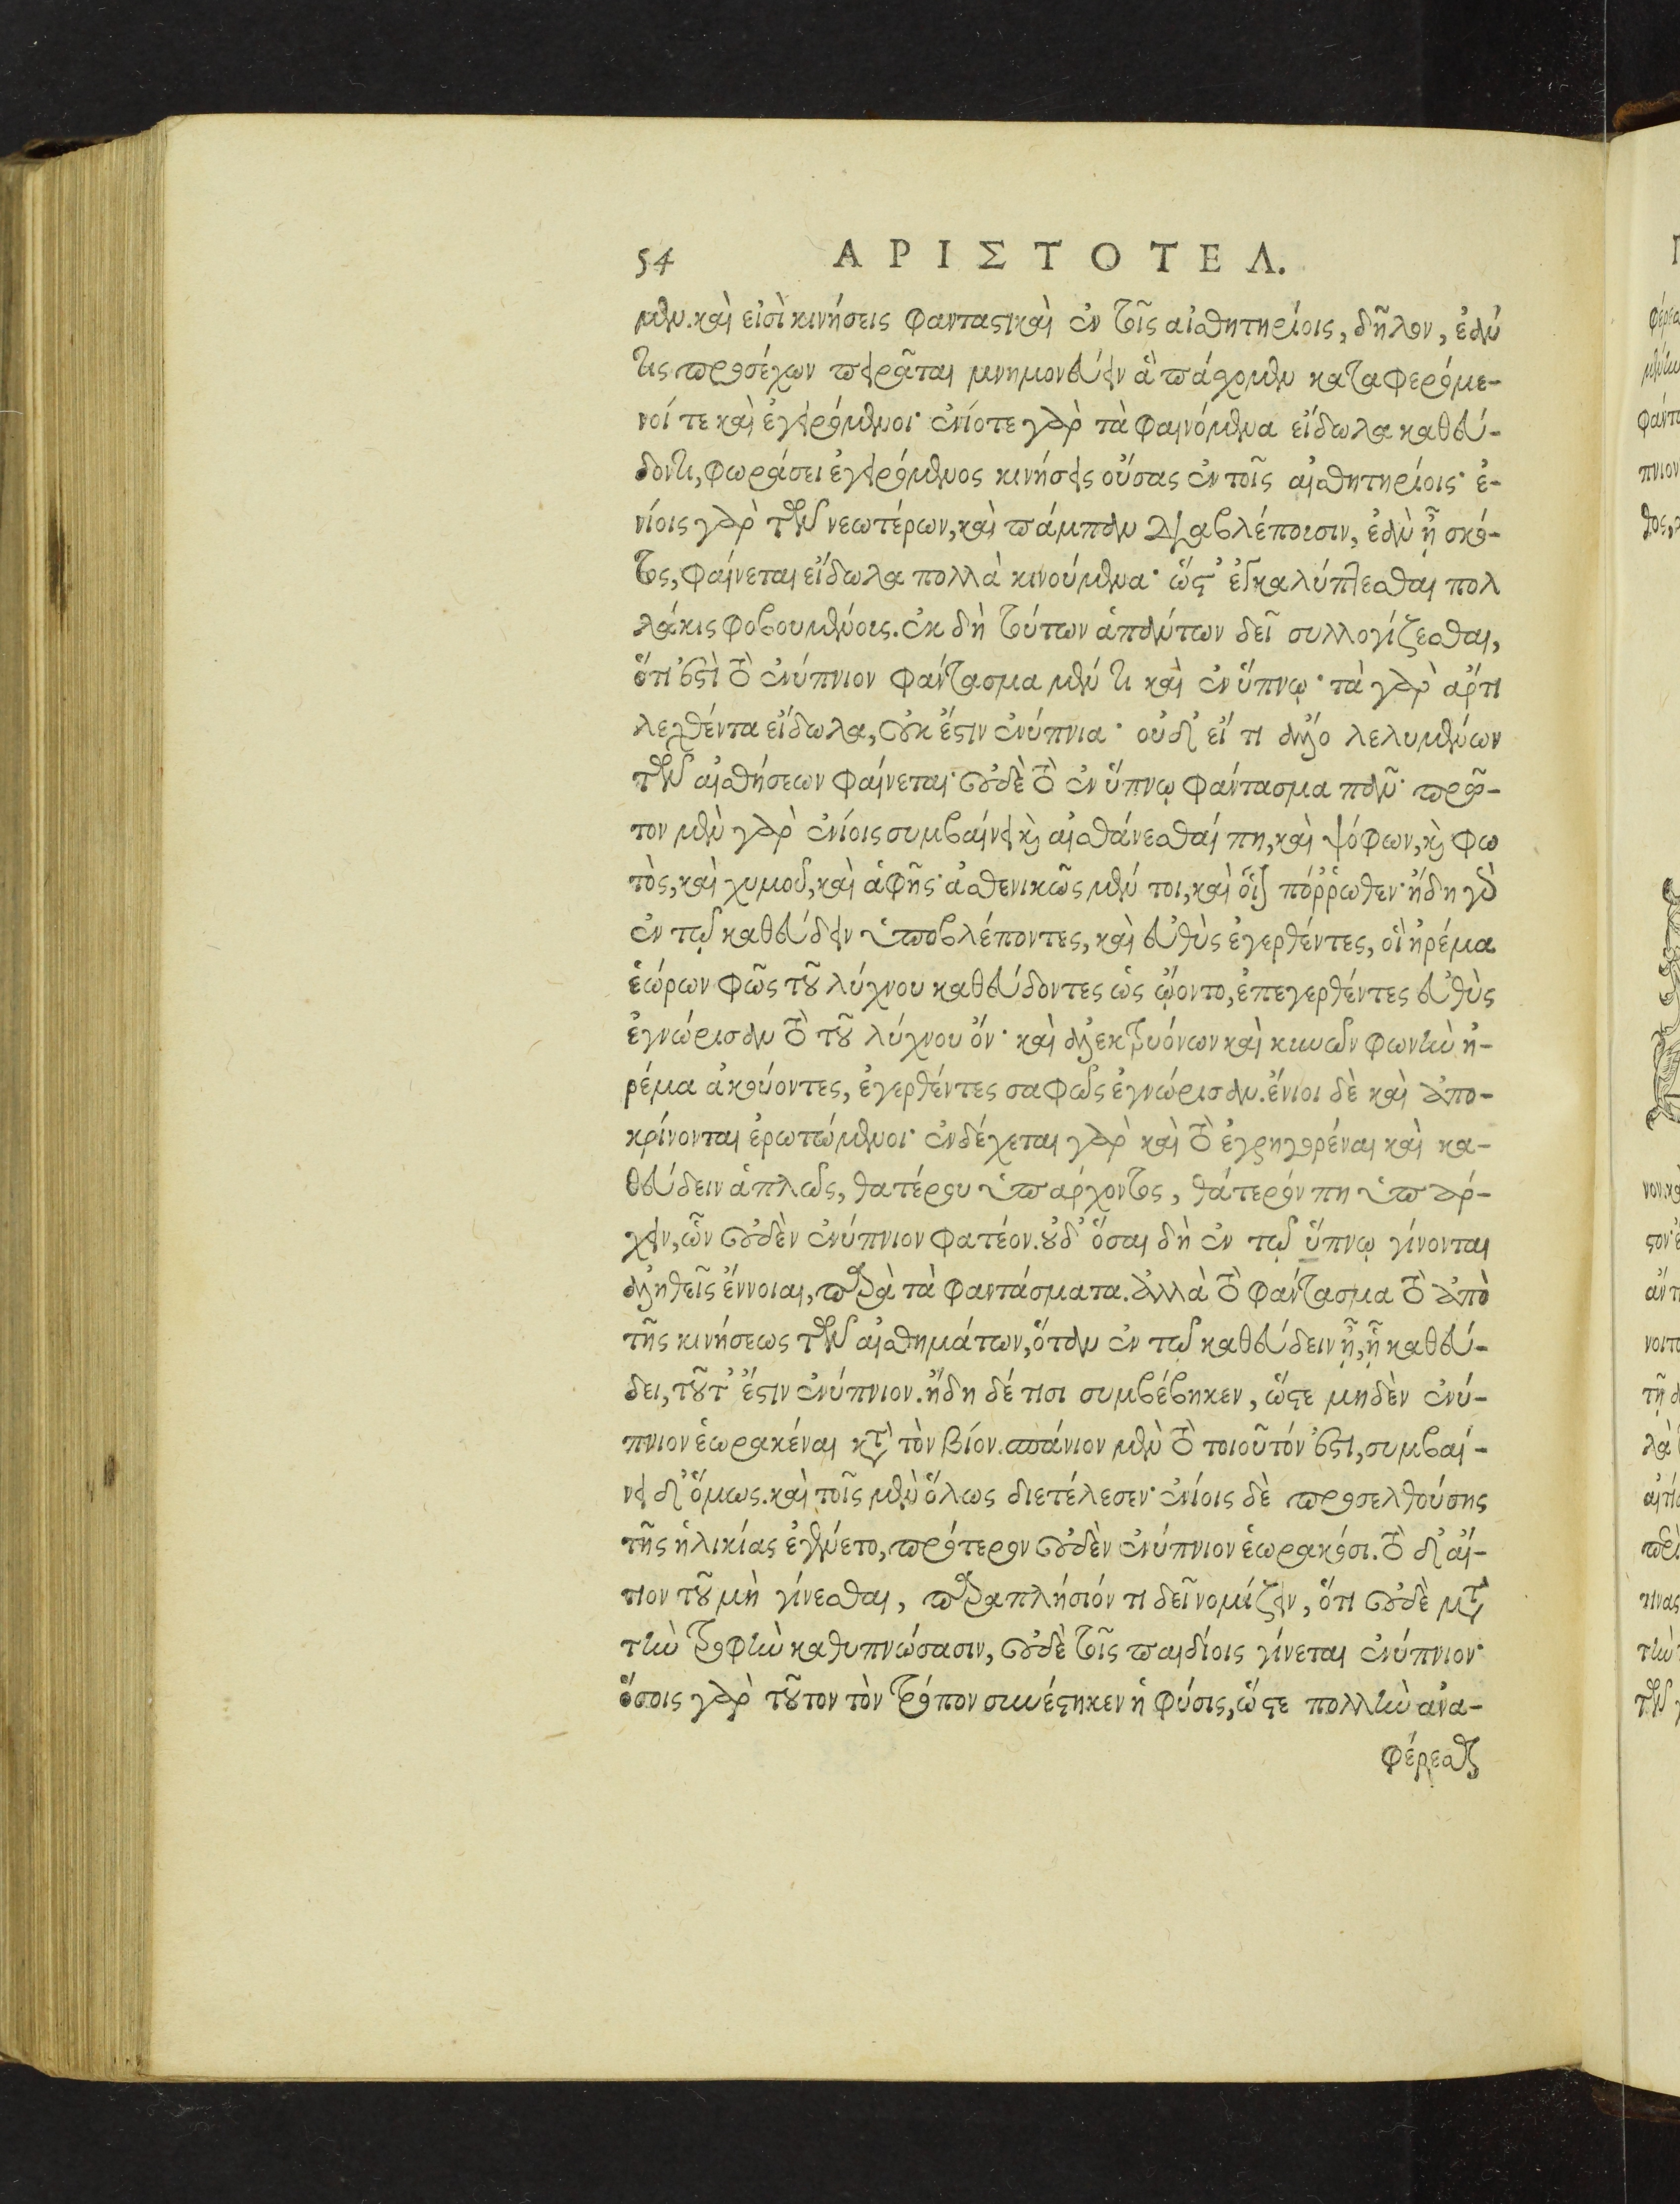 54 ΑΡΙΣΤΟΤΕΛ.
μεν. καὶ εἰσὶ κινήσεις φανταστικαὶ ἐν τοῖς αἰσθητηρίοις, δῆλον, ἐάν
τις προσέχων πειρᾶται μνημονεύειν ἃ πάσχομεν καταφερόμε-
νοί τε καὶ ἐγειρόμενοι· ἐνίοτε γὰρ τὰ φαινόμενα εἴδωλα καθεύ-
δοντι, φωράσει ἐγειρόμενος κινήσεις οὔσας ἐν τοῖς αἰσθητηρίοις· ἐ-
νίοις γὰρ τῶν νεωτέρων, καὶ πάμπαν διαβλέπουσιν, ἐὰν ᾖ σκό-
τος, φαίνεται εἴδωλα πολλὰ κινούμενα· ὥστ' ἐγκαλύπτεσθαι πολ
λάκις φοβουμένους. ἐκ δὴ τούτων ἁπάντων δεῖ συλλογίζεσθαι,
ὅτι ἐστὶ τὸ ἐνύπνιον φάντασμα μέν τι καὶ ἐν ὕπνῳ· τὰ γὰρ ἄρτι
λεχθέντα εἴδωλα, οὐκ ἔστιν ἐνύπνια· οὐδ' εἴ τι ἄλλο λελυμένων
τῶν αἰσθήσεων φαίνεται· οὐδὲ τὸ ἐν ὕπνῳ φάντασμα πᾶν· πρῶ-
τον μὲν γὰρ ἐνίοις συμβαίνει καὶ αἰσθάνεσθαί πη, καὶ ψόφων, καὶ φω
τὸς, καὶ χυμοῦ, καὶ ἁφῆς· ἀσθενικῶς μέν τοι, καὶ οἷον πόῤῥωθεν· ἤδη γὰρ
ἐν τῷ καθεύδειν ὑποβλέποντες, καὶ εὐθὺς ἐγερθέντες, οἳ ἠρέμα
ἑώρων φῶς τοῦ λύχνου καθεύδοντες ὡς ᾤοντο, ἐπεγερθέντες εὐθὺς
ἐγνώρισαν τὸ τοῦ λύχνου ὄν· καὶ ἀλεκτρυόνων καὶ κυνῶν φωνὴν ἠ-
ρέμα ἀκούοντες, ἐγερθέντες σαφῶς ἐγνώρισαν. ἔνιοι δὲ καὶ ἀπο-
κρίνονται ἐρωτώμενοι· ἐνδέχεται γὰρ καὶ τὸ ἐγρηγορέναι καὶ κα-
θεύδειν ἁπλῶς, θατέρου ὑπάρχοντος, θάτερόν πη ὑπάρ-
χειν, ὧν οὐδὲν ἐνύπνιον φατέον. οὐδ' ὅσαι δὴ ἐν τῷ ὕπνῳ γίνονται
ἀληθεῖς ἔννοιαι, παρὰ τὰ φαντάσματα. ἀλλὰ τὸ φάντασμα τὸ ἀπὸ
τῆς κινήσεως τῶν αἰσθημάτων, ὅταν ἐν τῷ καθεύδειν ᾖ, ᾗ καθεύ-
δει, τοῦτ' ἔστιν ἐνύπνιον. ἤδη δέ τισι συμβέβηκεν, ὥστε μηδὲν ἐνύ-
πνιον ἑωρακέναι κατὰ τὸν βίον. σπάνιον μὲν τὸ τοιοῦτόν ἐστι, συμβαί-
νει δ' ὅμως. καὶ τοῖς μὲν ὅλως διετέλεσεν· ἐνίοις δὲ προσελθούσης
τῆς ἡλικίας ἐγένετο, πρότερον οὐδὲν ἐνύπνιον ἑωρακόσι. τὸ δ' αἴ-
τιον τοῦ μὴ γίνεσθαι, παραπλήσιόν τι δεῖ νομίζειν, ὅτι οὐδὲ μετὰ
τὴν τροφὴν καθυπνώσασιν, οὐδὲ τοῖς παιδίοις γίνεται ἐνύπνιον·
ὅσοις γὰρ τοῦτον τὸν τρόπον συνέστηκεν ἡ φύσις, ὥστε πολλὴν ἀνα-
φέρεσθαι